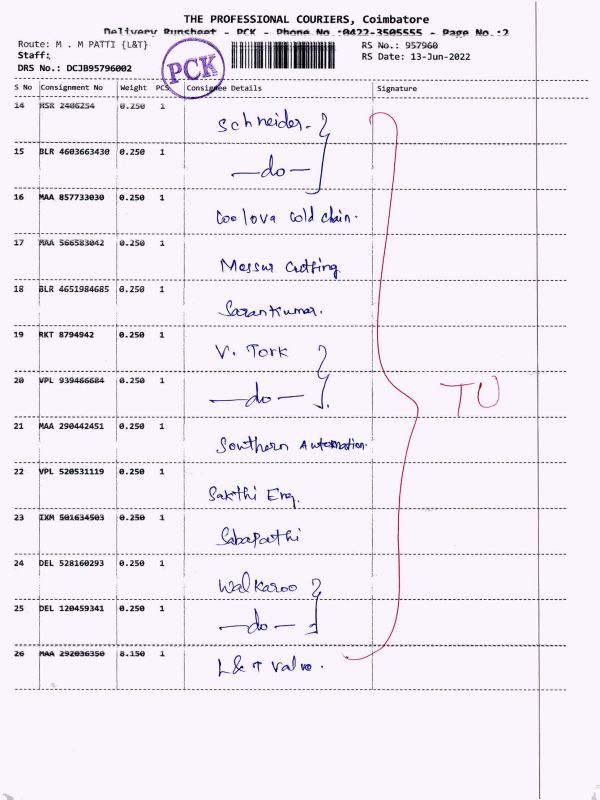 THE PROFESSIONAL COURIERS, Coimbatore
Delivery Runsheet - PCK - Phone No.:0422-3505555 - Page No.:2
Route: M . M PATTI {L&T}
RS No.: 957960
Staff:
RS Date: 13-Jun-2022
DRS No.: DCJB95796002
PCK
S No Consignment No Weight PCS Consignee Details Signature
14 HSR 2406254 0.250 1 Schneider.
15 BLR 4603663430 0.250 1 —do—
16 MAA 857733030 0.250 1 Coolova Cold chain.
17 MAA 566583042 0.250 1 Messur Cutting
18 BLR 4651984685 0.250 1 Sarankumar.
19 RKT 8794942 0.250 1 V. Tork
20 VPL 939466684 0.250 1 —do—
TU
21 MAA 290442451 0.250 1 Southern Automation.
22 VPL 520531119 0.250 1 Sakthi Eng.
23 IXM 501634503 0.250 1 Sabapathi
24 DEL 528160293 0.250 1 Walkaroo
25 DEL 120459341 0.250 1 —do—
26 MAA 292036350 8.150 1 L&T Valve.